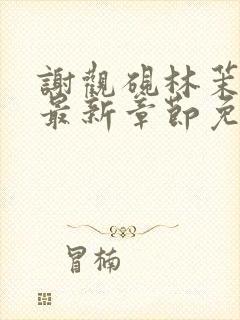 謝觀硯林茉
最新章節免
冒楠